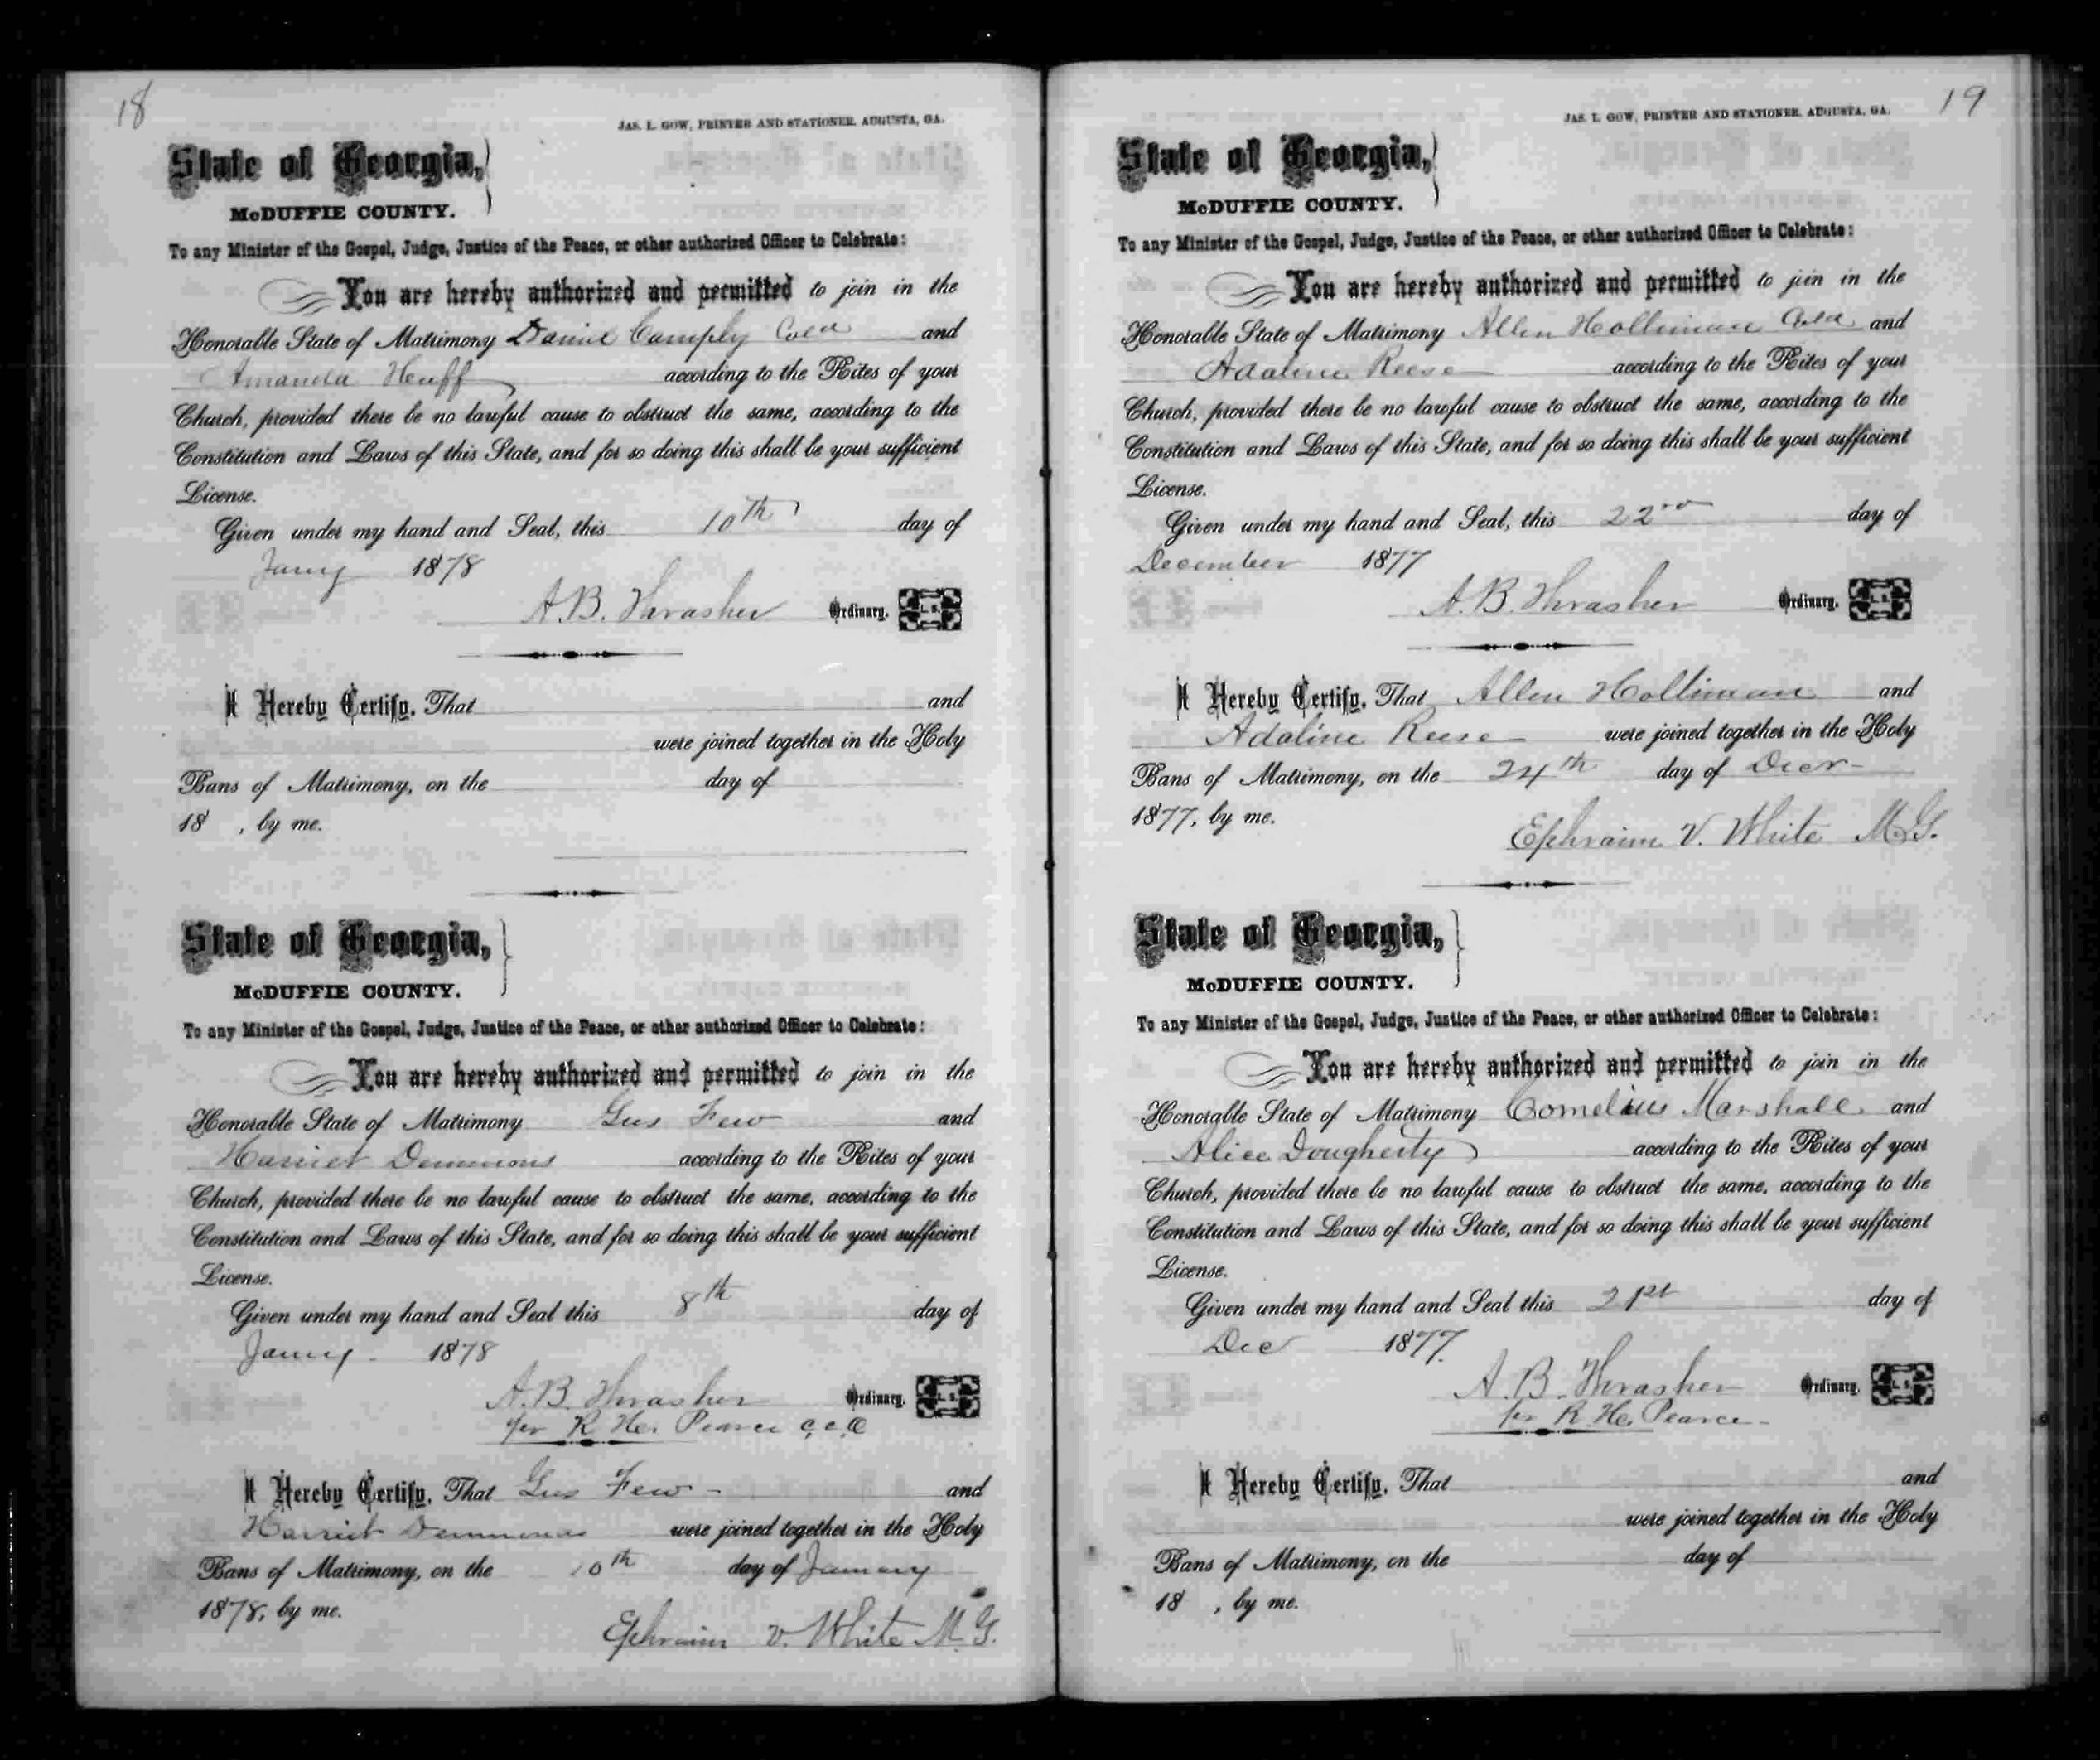 18
JAS. L. GOW, PRINTER AND STATIONER, AUGUSTA, GA.
State of Georgia,
McDUFFIE COUNTY.
To any Minister of the Gospel, Judge, Justice of the Peace, or other authorized Officer to Celebrate:
You are hereby authorized and permitted to join in the
Honorable State of Matrimony Daniel Camply Cold and
Amanda Huff according to the Rites of your
Church, provided there be no lawful cause to obstruct the same, according to the
Constitution and Laws of this State, and for so doing this shall be your sufficient
License.
Given under my hand and Seal, this 10th day of
Jany 1878
A. B. Thrasher Ordinary. L. S.
I Hereby Certify, That and
were joined together in the Holy
Bans of Matrimony, on the day of
18 , by me.
State of Georgia,
McDUFFIE COUNTY.
To any Minister of the Gospel, Judge, Justice of the Peace, or other authorized Officer to Celebrate:
You are hereby authorized and permitted to join in the
Honorable State of Matrimony Gus Few and
Harriet Demmons according to the Rites of your
Church, provided there be no lawful cause to obstruct the same, according to the
Constitution and Laws of this State, and for so doing this shall be your sufficient
License.
Given under my hand and Seal this 8th day of
Jany 1878
A. B. Thrasher Ordinary. L. S.
per R. H. Pearce
I Hereby Certify, That Gus Few and
Harriet Demmons were joined together in the Holy
Bans of Matrimony, on the 10th day of January
1878, by me.
Ephraim V. White M. G.
19
JAS. L. GOW, PRINTER AND STATIONER, AUGUSTA, GA.
State of Georgia,
McDUFFIE COUNTY.
To any Minister of the Gospel, Judge, Justice of the Peace, or other authorized Officer to Celebrate:
You are hereby authorized and permitted to join in the
Honorable State of Matrimony Allen Holliman Cold and
Adaline Reese according to the Rites of your
Church, provided there be no lawful cause to obstruct the same, according to the
Constitution and Laws of this State, and for so doing this shall be your sufficient
License.
Given under my hand and Seal, this 22nd day of
December 1877
A. B. Thrasher Ordinary. L. S.
I Hereby Certify, That Allen Holliman and
Adaline Reese were joined together in the Holy
Bans of Matrimony, on the 24th day of Decr
1877, by me.
Ephraim V. White M. G.
State of Georgia,
McDUFFIE COUNTY.
To any Minister of the Gospel, Judge, Justice of the Peace, or other authorized Officer to Celebrate:
You are hereby authorized and permitted to join in the
Honorable State of Matrimony Cornelius Marshall and
Alice Dougherty according to the Rites of your
Church, provided there be no lawful cause to obstruct the same, according to the
Constitution and Laws of this State, and for so doing this shall be your sufficient
License.
Given under my hand and Seal this 21st day of
Dec 1877.
A. B. Thrasher Ordinary. L. S.
per R. H. Pearce
I Hereby Certify, That and
were joined together in the Holy
Bans of Matrimony, on the day of
18 , by me.